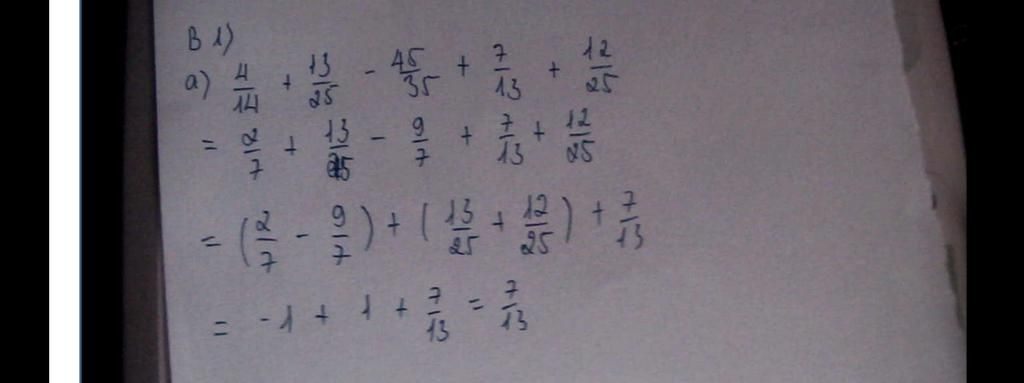 B 1)
a) 4/14 + 13/25 - 45/35 + 7/13 + 12/25
= 2/7 + 13/25 - 9/7 + 7/13 + 12/25
= (2/7 - 9/7) + (13/25 + 12/25) + 7/13
= -1 + 1 + 7/13 = 7/13